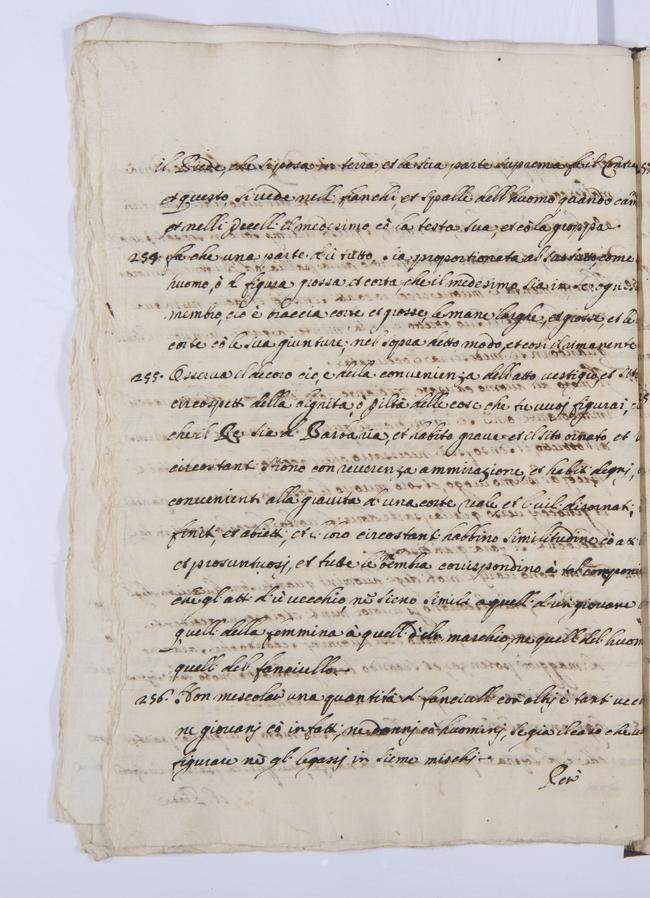 il Piede, che si posa in terra et la sua parte suprema fa il Contra
et questo si vede nelli fianchi et spalle dell'huomo quando cam
et nelli Vccelli il medesimo cō la testa sua, et cō la groppa.
254. fa che una parte d'ū tutto sia proportionata al suo tutto, come
huomo, ò d. figura grossa et corta che il medesimo sia in se ogni
membro, cio è braccia corte et grosse, le mane larghe, et grosse, et le
corte cō le sua giunture, nel sopra detto modo, et cosi il rimanente
255. Osserva il decoro cio, è della convenienza dell'atto vestigi, et sito
circospetti della dignita o viltà delle cose che tu vuoj figurar, c
che il Re sia di Barba ria, et habito grave et il sito ornato, et i
circostanti stieno con reverenza ammirazione, et habiti degnj,
convenienti alla gravità d'una corte reale et i vili disornati,
finti, et abietti, et i loro circostanti habbino similitudine cō atti
et prosuntuosj, et tutte le membra corrispondino à tal componi
che gl'atti d'ū vecchio, nō sieno simili a quelli d'un giovane
quelli della femmina à quelli del maschio, ne quelli del huom
quelli del fanciullo.
256. Non mescolar una quantità di fanciulli con altrj è tanti vecc
ne giovanj cō infati, ne donnj cō huominj, se gia il caso che v
figurare nō gli legassj in sieme mischj.
Rere